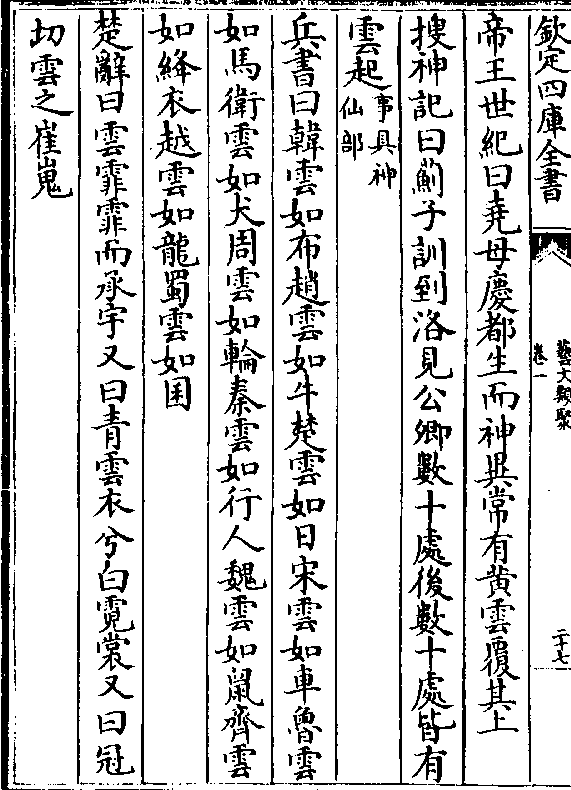 欽定四庫全書
藝文類聚
卷一
二十七
帝王世紀曰堯母慶都生而神異常有黃雲覆其上
搜神記曰薊子訓到洛見公卿數十處後數十處皆有
雲起事具神仙部
兵書曰韓雲如布趙雲如牛楚雲如日宋雲如車魯雲
如馬衛雲如犬周雲如輪秦雲如行人魏雲如鼠齊雲
如絳衣越雲如龍蜀雲如囷
楚辭曰雲霏霏而承宇又曰青雲衣兮白霓裳又曰冠
切雲之崔嵬